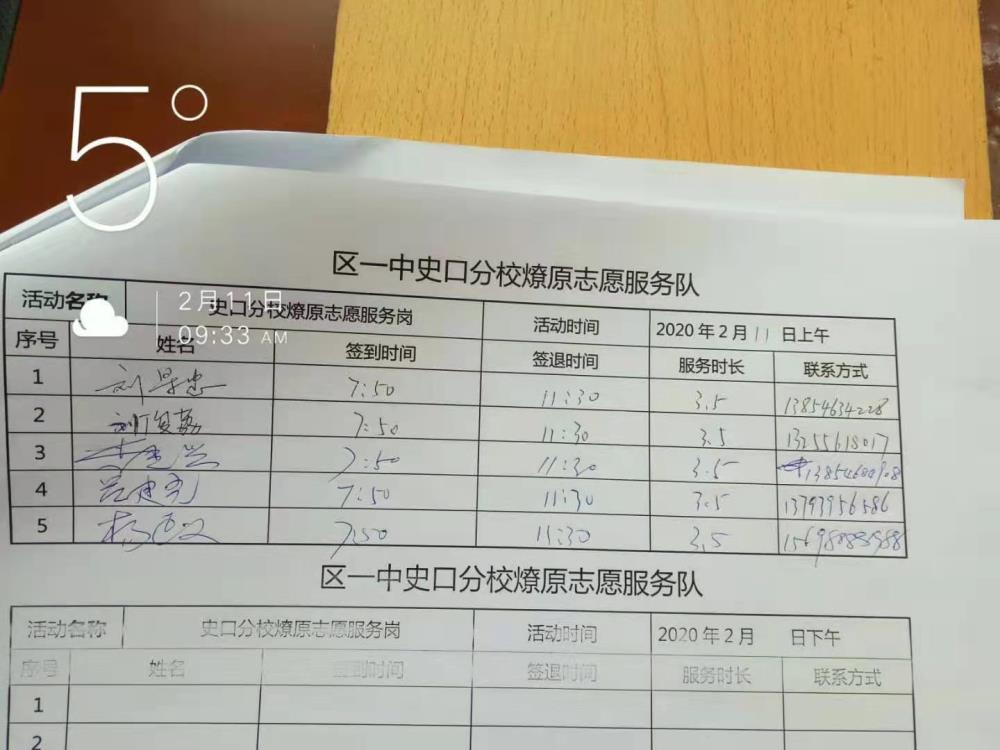 5°
2月11日
09:33 AM
区一中史口分校燎原志愿服务队
活动名称 史口分校燎原志愿服务岗 活动时间 2020年2月11日上午
序号 姓名 签到时间 签退时间 服务时长 联系方式
1 7:50 11:30 3.5 13854634228
2 7:50 11:30 3.5 13255618017
3 7:50 11:30 3.5
4 7:50 11:30 3.5 13793956586
5 7:50 11:30 3.5
区一中史口分校燎原志愿服务队
活动名称 史口分校燎原志愿服务岗 活动时间 2020年2月 日下午
序号 姓名 签到时间 签退时间 服务时长 联系方式
1
2